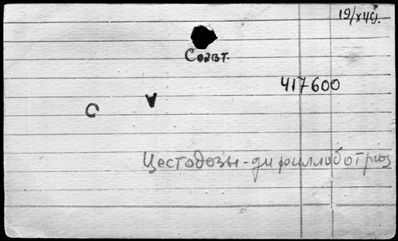 19/X 40.
Соавт.
417600
Цестодозы-дифиллоботриоз